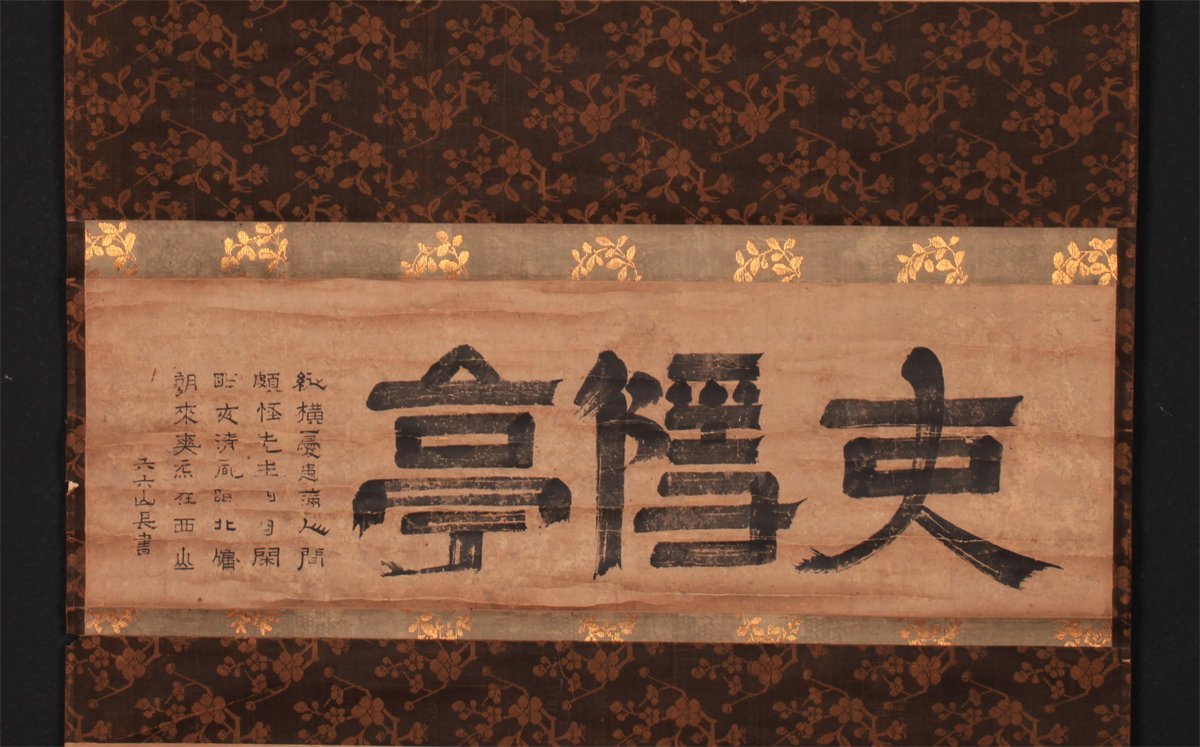 吏隱亭
縱橫憂患滿人間
頗怪先生日日閑
昨夜清風眠北牖
朝來爽氣在西山
六六山長書